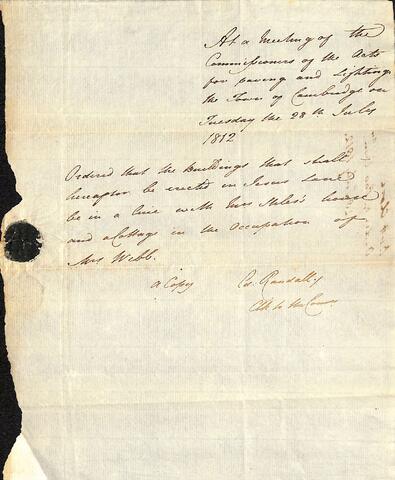 At a Meeting of the
Commissioners of the Acts
for paving and Lighting
the Town of Cambridge on
Tuesday the 28th July
1812
Ordered that the Buildings that shall
hereafter be erected in Jesus Lane
be in a line with Mrs house
and a Cottage in the Occupation of
Mrs Webb.
a Copy
Randall
Clk to the Comrs